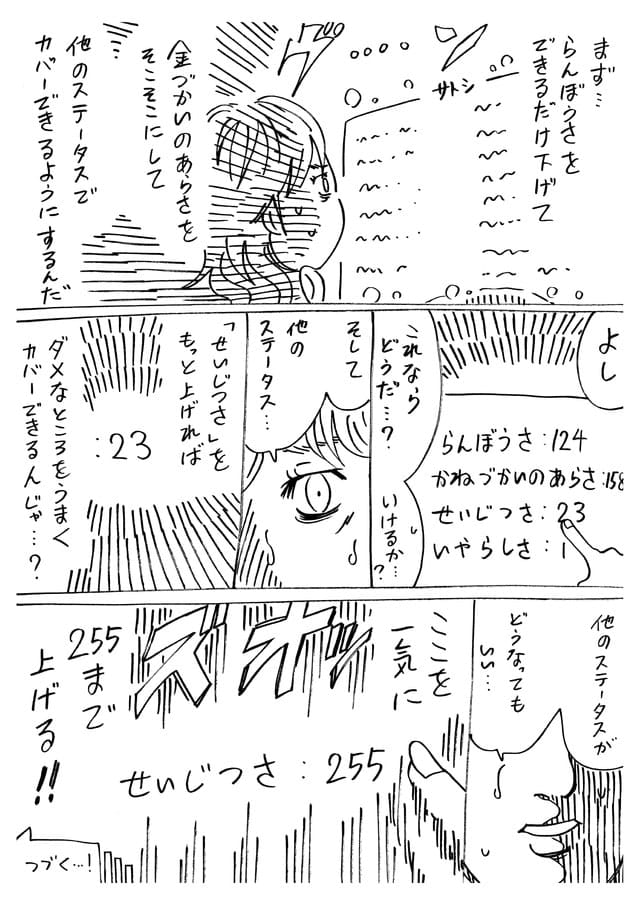 まず…
らんぼうさを
できるだけ下げて
サトシ
金づかいのあらさを
そこそこにして
他のステータスで
カバーできるようにするんだ
よし
らんぼうさ:124
かねづかいのあらさ:158
せいじつさ:23
いやらしさ:1
これなら
どうだ…?
いけるか…?
そして
他の
ステータス…
「せいじつさ」を
もっと上げれば
:23
ダメなところをうまく
カバーできるんじゃ…?
他のステータスが
どうなっても
いい…
ここを
一気に
255まで
上げる!!
せいじつさ:255
つづく…!